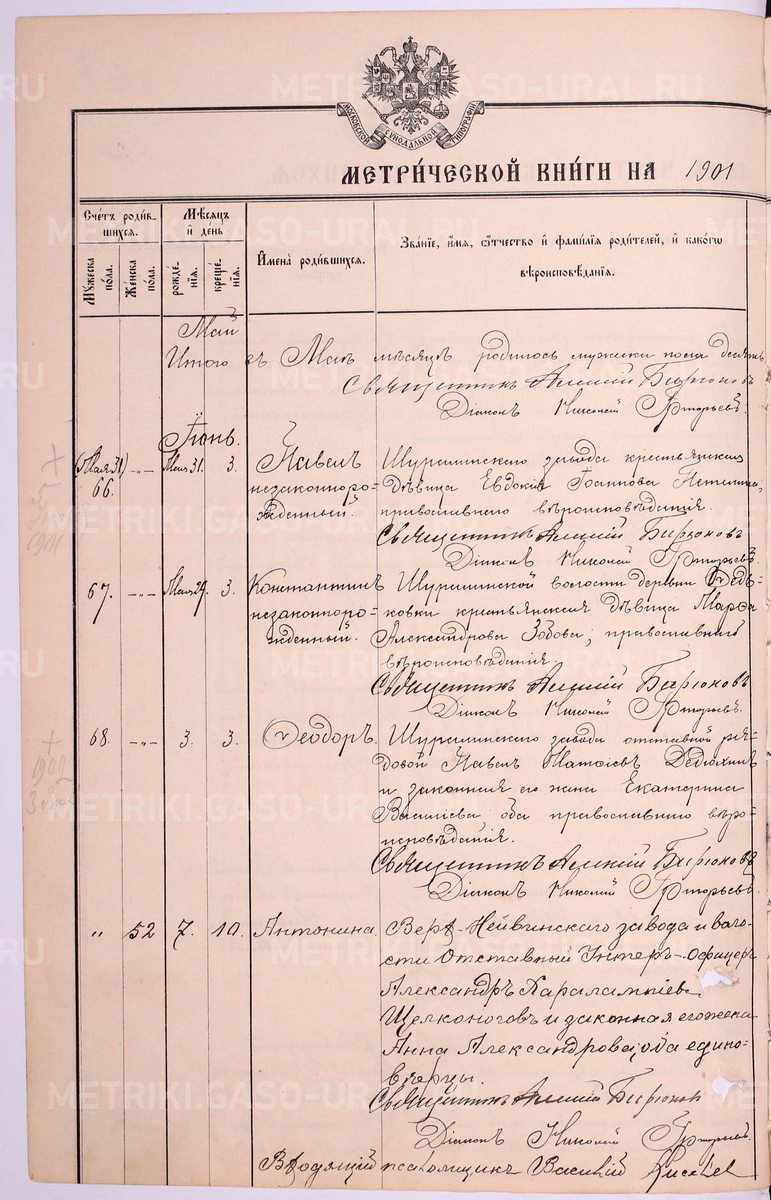 МОСКОВСКОЙ СѴНОДАЛЬНОЙ ТИПОГРАФІИ
МЕТРИ́ЧЕСКОЙ КНИ́ГИ НА 1901
Счетъ роди́в-
шихся.
Мѣсяцъ
и де́нь
Имена̀ роди́вшихся.
Зва́нїе, и́мя, ѻ́тчество и фами́лїя роди́телей, и како́гѡ
вѣроисповѣ́данїя.
Мꙋжеска по́ла.
Же́нска по́ла.
рожде́-нїя.
креще́-нїя.
Май
Итого въ Маѣ мѣсяцѣ родилось мужеска пола десять
Священникъ Алексій Бирюковъ
Діаконъ Николай Григорьевъ.
Іюнь.
(Мая 31) 66. -„- Мая 31. 3. Павелъ Шуралинскаго завода крестьянская
незаконноро- дѣвица Евдокія Іоаннова
жденный. православнаго вѣроисповѣданія.
Священникъ Алексій Бирюковъ
Діаконъ Николай Григорьевъ.
67. -„- Мая 29. 3. Константинъ Шуралинской волости деревни Ѳедь-
незаконноро- ковки крестьянская дѣвица Марѳа
жденный. Александрова Зобова, православнаго
вѣроисповѣданія.
Священникъ Алексій Бирюковъ
Діаконъ Николай Григорьевъ.
68. -„- 3. 3. Ѳеодоръ. Шуралинскаго завода отставной ря-
довой Павелъ Матѳіевъ Дедюхинъ
и законная его жена Екатерина
Василіева, оба православнаго вѣро-
исповѣданія.
Священникъ Алексій Бирюковъ
Діаконъ Николай Григорьевъ.
„ 52 7. 10. Антонина. Верхъ-Нейвинскаго завода и воло-
сти Отставный Унтеръ-Офицеръ
Александръ Харалампіевъ
Щелконоговъ и законная его жена
Анна Александровна, оба едино-
вѣрцы.
Священникъ Алексій Бирюковъ
Діаконъ Николай Григорьевъ.
псаломщикъ Василій
METRIKI.GASO-URAL.RU